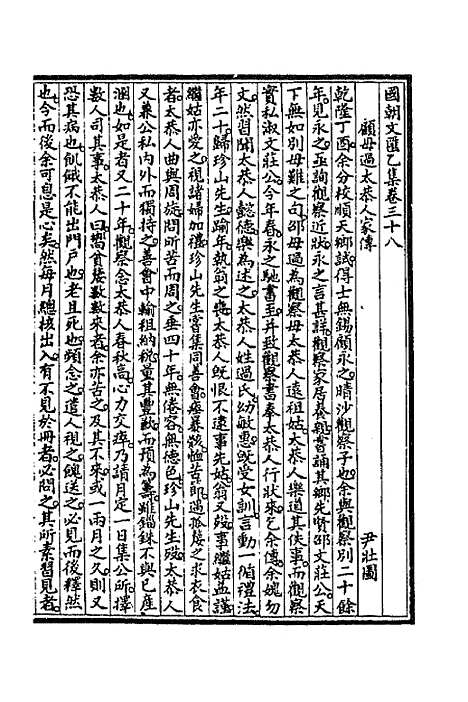 國朝文匯乙集卷三十八
顧母過太恭人家傳
尹壯圖
乾隆丁酉余分校順天鄉試得士無錫顧永之晴沙觀察子也余與觀察別二十餘
年見永之亟詢觀察近狀永之言甚詳觀察家居奉親嘗誦其鄉先賢邵文莊公天
下無如別母難之句邵母過為觀察母太恭人遠祖姑太恭人樂道其佚事而觀察
實私淑文莊公今年春永之馳書至并致觀察書奉太恭人行狀來乞余傳余媿勿
文然習聞太恭人懿德樂為述之太恭人姓過氏幼敏惠既受女訓言動一循禮法
年二十歸珍山先生踰年執翁之喪太恭人既恨不逮事先姑翁又歿事繼姑益謹
繼姑亦愛之視諸婦加禮珍山先生嘗集同善會瘞暴骸恤苦節遇孤嫠之求衣食
者太恭人曲與周旋問所苦而周之垂四十年無倦容無德色珍山先生歿太恭人
又兼公私內外而獨持之善會中輸租納稅量其豐歉而預為籌雖錙銖不與已産
溷也如是者又二十年觀察念太恭人春秋高心力交瘁乃請月定一日集公所擇
數人司其事太恭人曰嚮貧嫠數數來者余亦苦之及其不來或一兩月之久則又
恐其病也飢餓不能出門戶也老且死也頻念之遣人視之餽送之必見而後釋然
也今而後余可息是心矣然每月總核出入有不見於冊者必問之其所素習見者